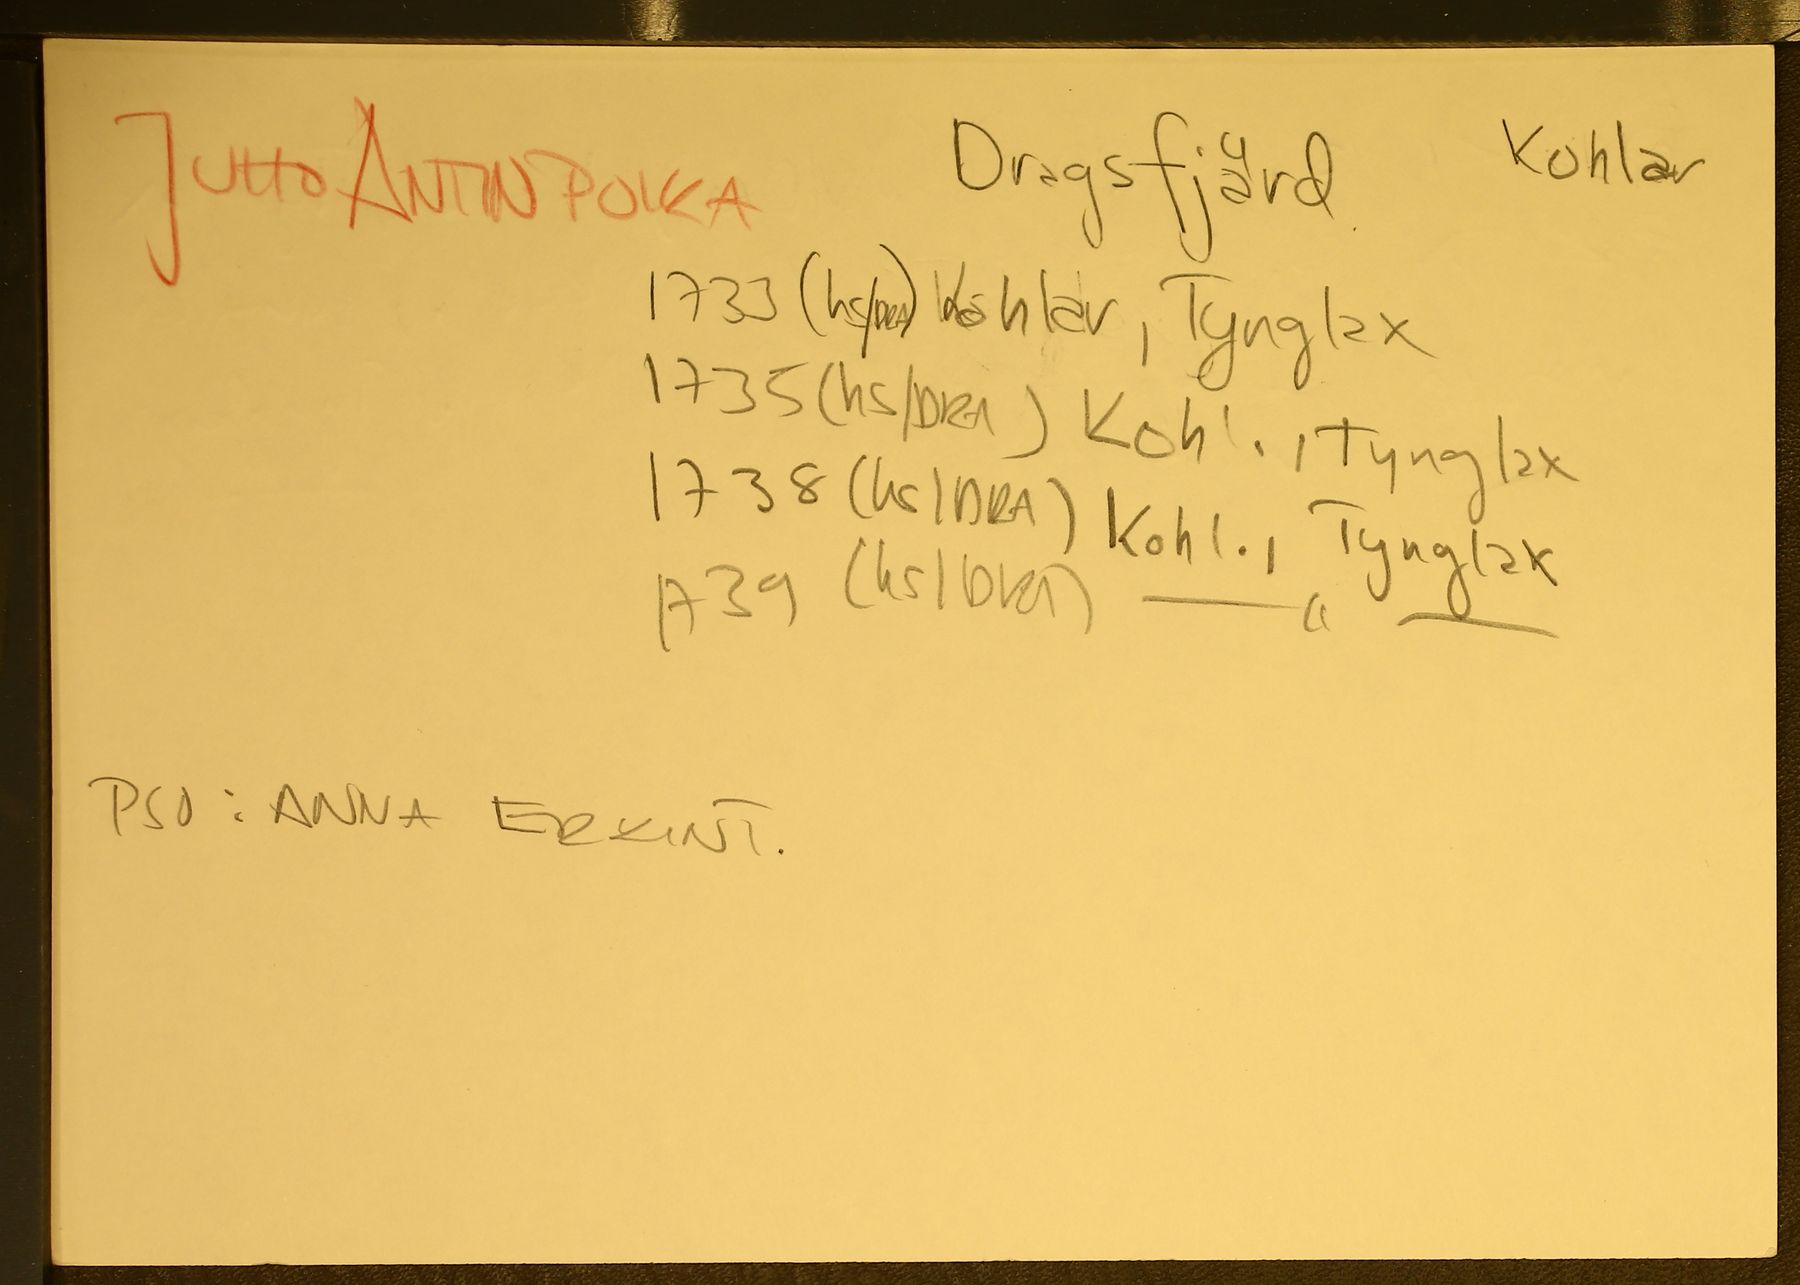 JUHO ANTINPOIKA Dragsfjärd Kohlar
1733 (hs/DRA) Kohlar, Tynglax
1735 (hs/DRA) Kohl., Tynglax
1738 (hs/DRA) Kohl., Tynglax
1739 (hs/DRA) — " —
PSO: ANNA ERKINT.